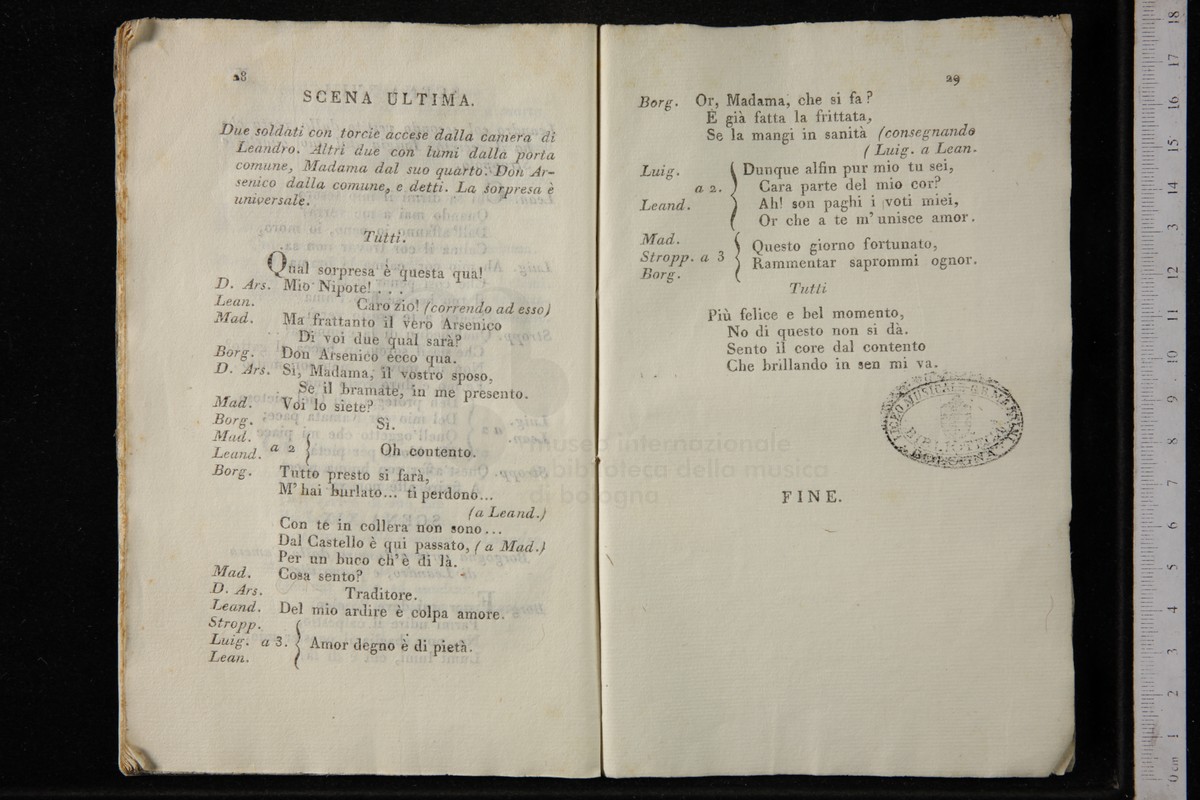 28
SCENA ULTIMA.
Due soldati con torcie accese dalla camera di
Leandro. Altri due con lumi dalla porta
comune, Madama dal suo quarto. Don Ar-
senico dalla comune, e detti. La sorpresa è
universale.
Tutti.
Qual sorpresa è questa qua!
D. Ars. Mio Nipote! . . .
Lean. Caro zio! (correndo ad esso)
Mad. Ma frattanto il vero Arsenico
Di voi due qual sarà?
Borg. Don Arsenico ecco qua.
D. Ars. Sì, Madama, il vostro sposo,
Se il bramate, in me presento.
Mad. Voi lo siete?
Borg. Sì.
Mad.
Leand. a 2 { Oh contento.
Borg. Tutto presto si farà,
M' hai burlato... ti perdono...
(a Leand.)
Con te in collera non sono...
Dal Castello è qui passato, (a Mad.)
Per un buco ch' è di là.
Mad. Cosa sento?
D. Ars. Traditore.
Leand. Del mio ardire è colpa amore.
Stropp.
Luig. a 3. { Amor degno è di pietà.
Lean.
29
Borg. Or, Madama, che si fa?
E già fatta la frittata,
Se la mangi in sanità (consegnando
( Luig. a Lean.
Luig. { Dunque alfin pur mio tu sei,
a 2. Cara parte del mio cor?
Leand. Ah! son paghi i voti miei,
Or che a te m' unisce amor.
Mad. { Questo giorno fortunato,
Stropp. a 3 Rammentar saprommi ognor.
Borg.
Tutti
Più felice e bel momento,
No di questo non si dà.
Sento il core dal contento
Che brillando in sen mi va.
LICEO MUSICALE G.B. MARTINI
BIBLIOTECA
BOLOGNA
FINE.
museo internazionale
e biblioteca della musica
di bologna
0 cm 1 2 3 4 5 6 7 8 9 10 11 12 13 14 15 16 17 18